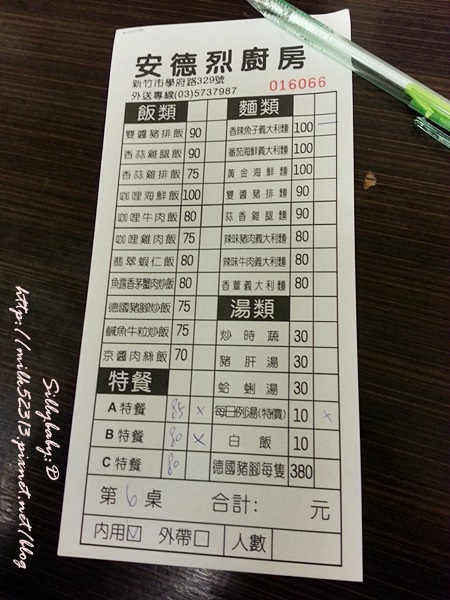 安德烈廚房
新竹市學府路329號
外送專線(03)5737987
016066
飯類
雙醬豬排飯 90
香蒜雞腿飯 90
香蒜雞排飯 75
咖哩海鮮飯 100
咖哩牛肉飯 80
咖哩雞肉飯 75
翡翠蝦仁飯 80
魚露香茅蟹肉炒飯 80
德國豬腳炒飯 75
鹹魚牛粒炒飯 75
京醬肉絲飯 70
特餐
A特餐 85 x
B特餐 80 x
C特餐 80
麵類
香辣魚子義大利麵 100 一
蕃茄海鮮義大利麵 100
黃金海鮮麵 100
雙醬豬排麵 90
蒜香雞麵 90
辣味豬肉義大利麵 80
辣味牛肉義大利麵 80
香蕈義大利麵 80
湯類
炒時蔬 30
豬肝湯 30
蛤蜊湯 30
每日例湯(特價) 10 x
白飯 10
德國豬腳每隻 380
第6桌 合計: 元
内用☑ 外帶☐ 人數
Silkybaby:D
http://milk52313.pixnet.net/blog